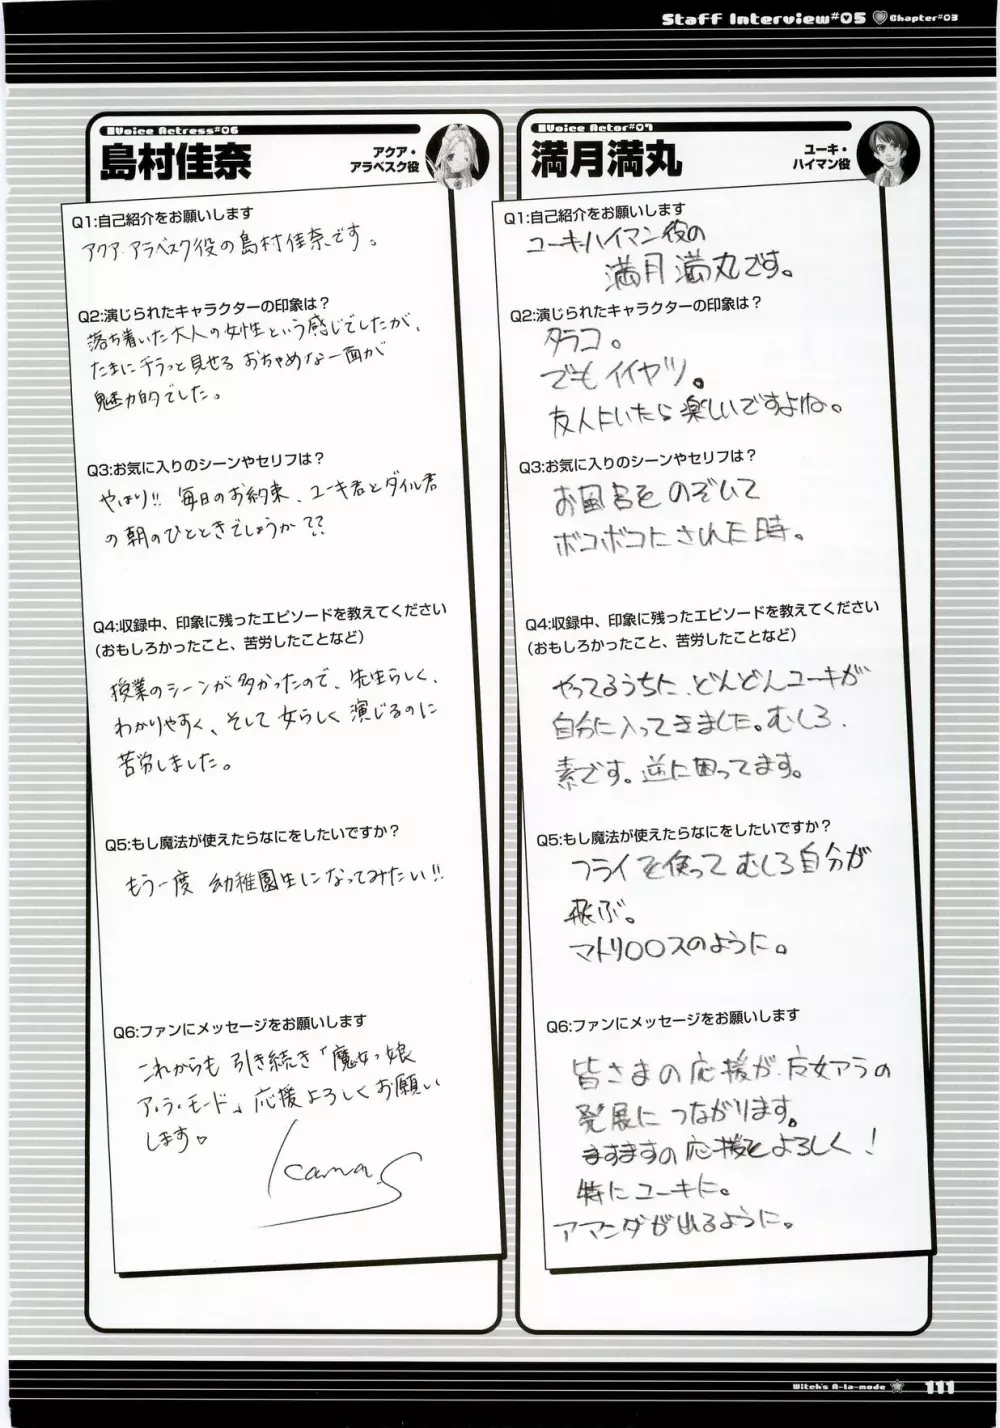 Staff Interview#05 Chapter#03
Voice Actress#06
島村佳奈
アクア・
アラベスク役
Q1:自己紹介をお願いします
アクア・アラベスク役の島村佳奈です。
Q2:演じられたキャラクターの印象は？
落ち着いた大人の女性という感じでしたが、
たまにチラっと見せる おちゃめな一面が
魅力的でした。
Q3:お気に入りのシーンやセリフは？
やはり!! 毎日のお約束、ユーキ君とダイル君
の朝のひとときでしょうか??
Q4:収録中、印象に残ったエピソードを教えてください
（おもしろかったこと、苦労したことなど）
授業のシーンが多かったので、先生らしく、
わかりやすく、そして女らしく演じるのに
苦労しました。
Q5:もし魔法が使えたらなにをしたいですか？
もう一度 幼稚園生になってみたい!!
Q6:ファンにメッセージをお願いします
これからも 引き続き「魔女っ娘
ア・ラ・モード」応援よろしくお願い
します♡
Kana.S
Voice Actor#07
満月満丸
ユーキ・
ハイマン役
Q1:自己紹介をお願いします
ユーキ・ハイマン役の
満月満丸です。
Q2:演じられたキャラクターの印象は？
タラコ。
でもイイヤツ。
友人にいたら楽しいですよね。
Q3:お気に入りのシーンやセリフは？
お風呂をのぞいて
ボコボコにされた時。
Q4:収録中、印象に残ったエピソードを教えてください
（おもしろかったこと、苦労したことなど）
やってるうちに、どんどんユーキが
自分に入ってきました。むしろ、
素です。逆に困ってます。
Q5:もし魔法が使えたらなにをしたいですか？
フライを使って むしろ自分が
飛ぶ。
マトリ○○スのように。
Q6:ファンにメッセージをお願いします
皆さまの応援が、女アラの
発展につながります。
ますますの応援をよろしく！
特にユーキに。
アマンダが出るように。
Witch's A-la-mode 111